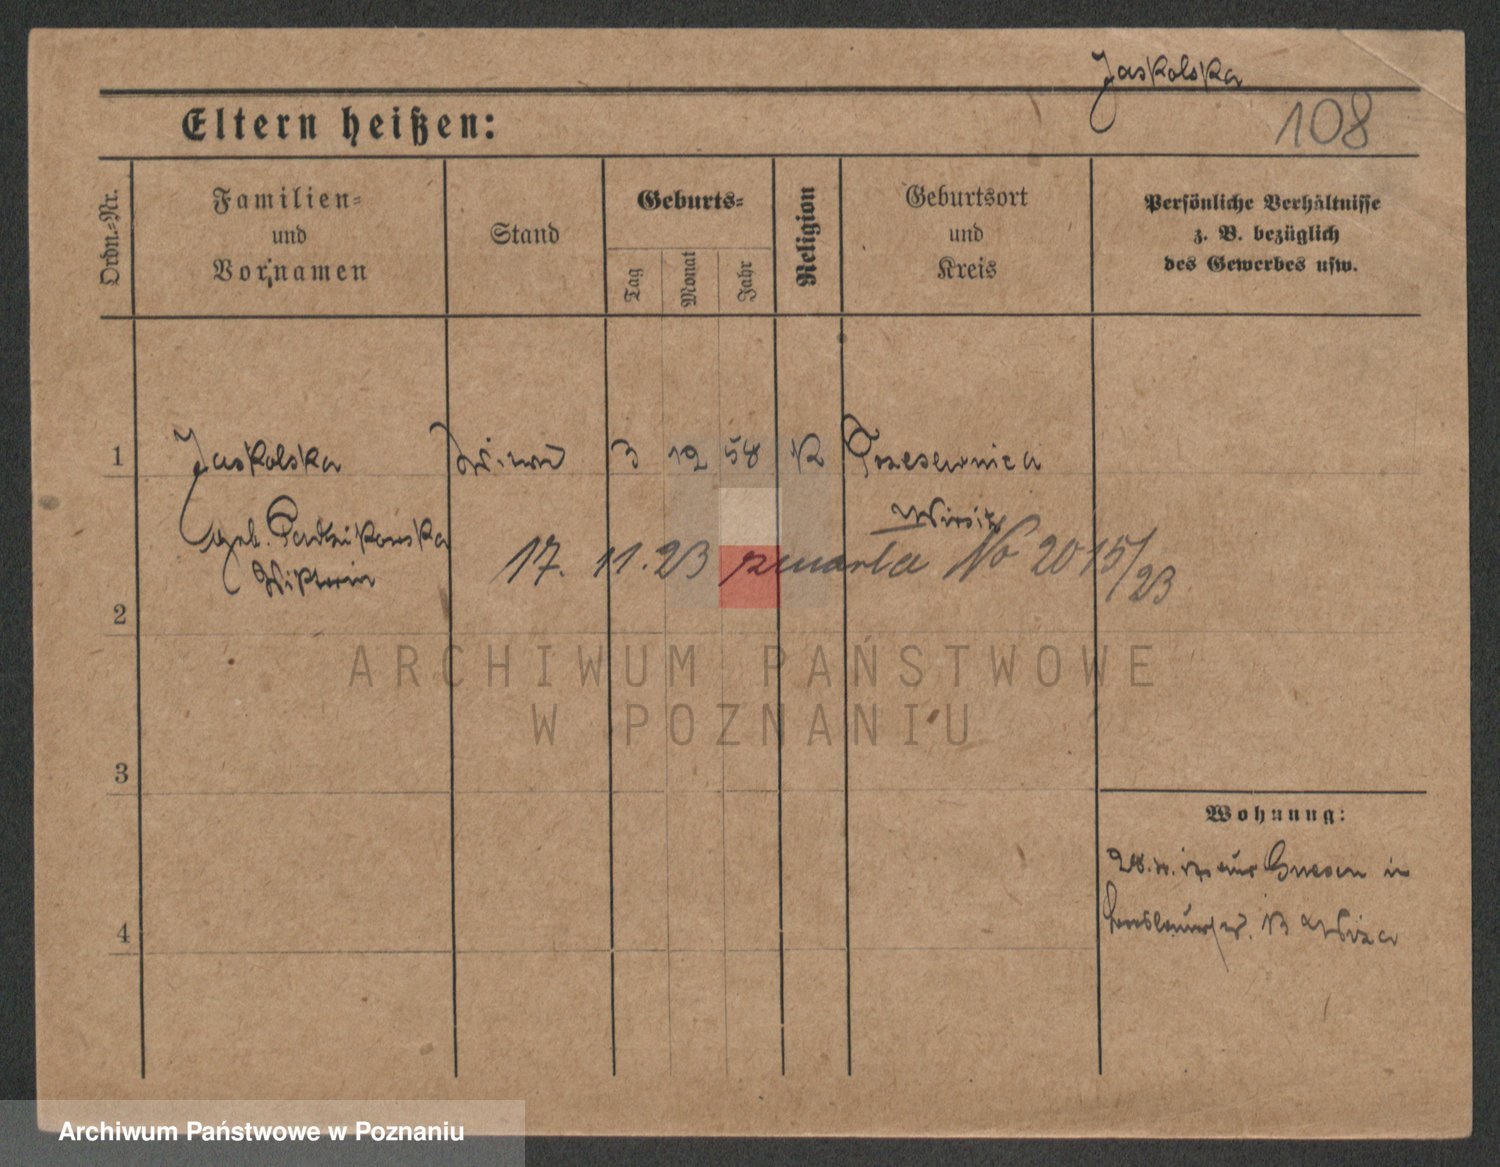 Jaskolska
Eltern heißen:
108
Ordn.-Nr.
Familien-
und
Vornamen
Stand
Geburts-
Tag
Monat
Jahr
Religion
Geburtsort
und
Kreis
Persönliche Verhältnisse
z. B. bezüglich
des Gewerbes usw.
1
Jaskolska
3 12 58 K
Wirsitz
geb.
17. 11. 23 zmarła No 2015/23
2
ARCHIWUM PAŃSTWOWE
W POZNANIU
3
Wohnung:
aus Gnesen in
4
Archiwum Państwowe w Poznaniu